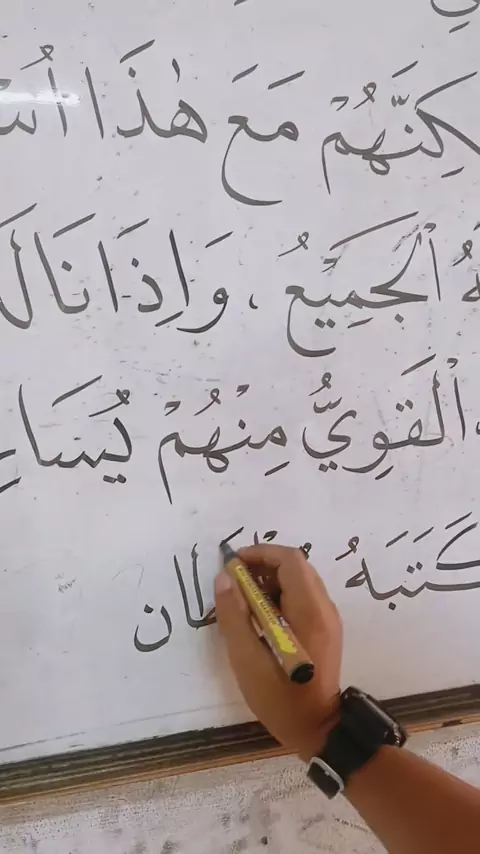 كِنَّهُمْ مَعَ هٰذَا
هُ الْجَمِيْعُ ، وَاِذَا نَالَ
الْقَوِيُّ مِنْهُمْ يُسَا
كَتَبَهُ